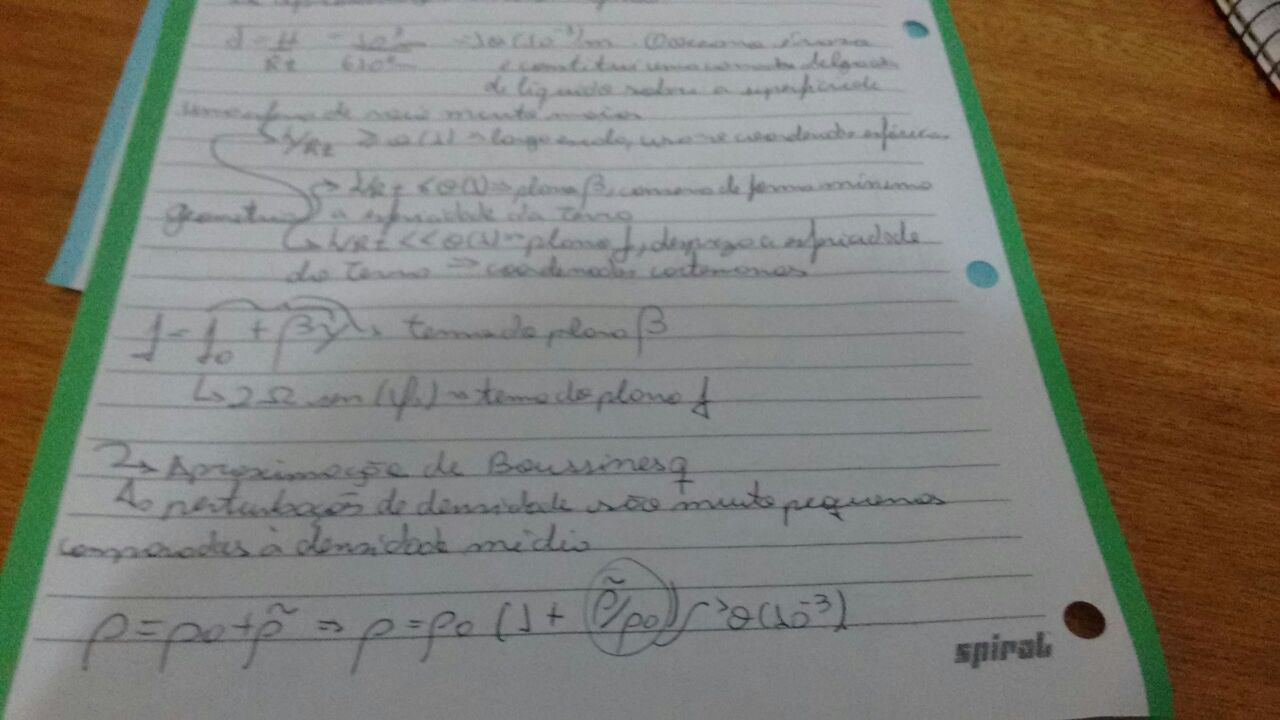 δ = H/Rt = 10³m = O(10⁻³)m
e constitui uma camada delgada
de líquido sobre a superfície de
uma esfera de raio muito maior
L/Rt ≥ O(1) → larga escala, usa-se coordenadas esféricas
L/Rt < O(1) → plano β, conserva de forma mínima
geometria a esfericidade da terra
L/Rt << O(1) → plano f, despreza a esfericidade
da terra → coordenadas cartesianas
f = f₀ + βy → termo do plano β
↳ 2Ω sen(φ₀) → termo do plano f
2→ Aproximação de Boussinesq
↳ perturbações de densidade são muito pequenas
comparadas à densidade média
ρ = ρ₀ + ρ̃ ⇒ ρ = ρ₀ (1 + ρ̃/ρ₀) → O(10⁻³)
spiral